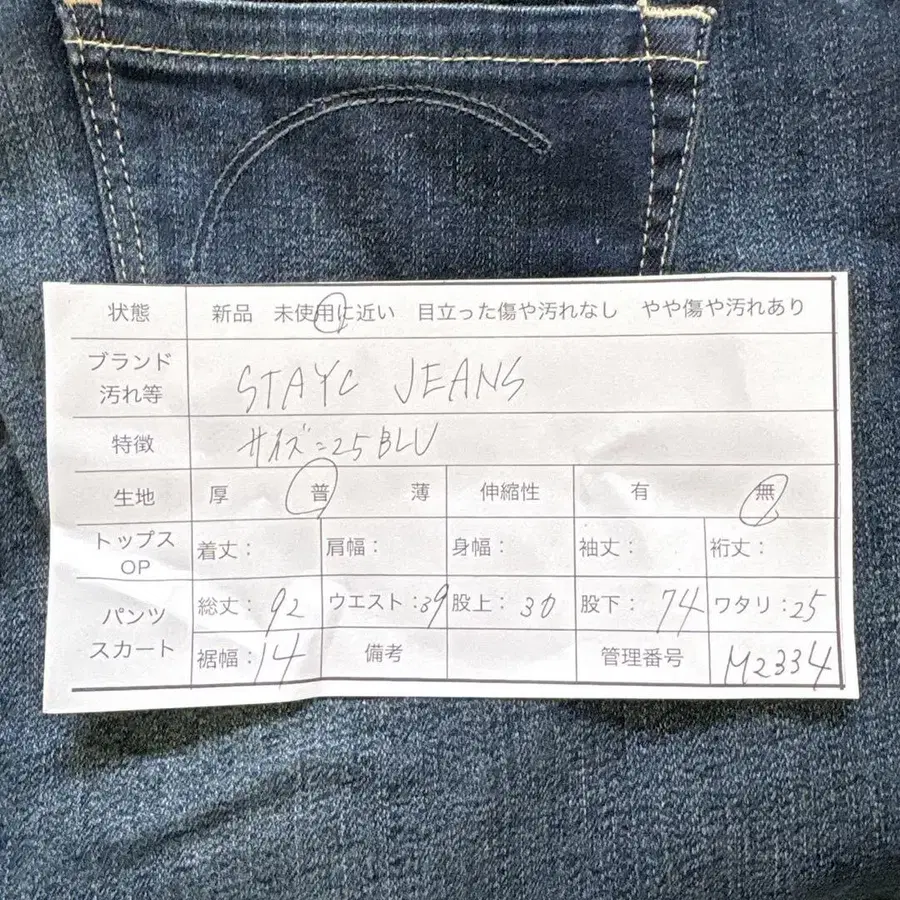 状態 新品 未使用に近い 目立った傷や汚れなし やや傷や汚れあり
ブランド
汚れ等 STAYC JEANS
特徴 サイズ=25 BLU
生地 厚 普 薄 伸縮性 有 無
トップス
OP 着丈: 肩幅: 身幅: 袖丈: 裄丈:
パンツ
スカート 総丈:92 ウエスト:39 股上:30 股下:74 ワタリ:25
裾幅:14 備考 管理番号 M2334